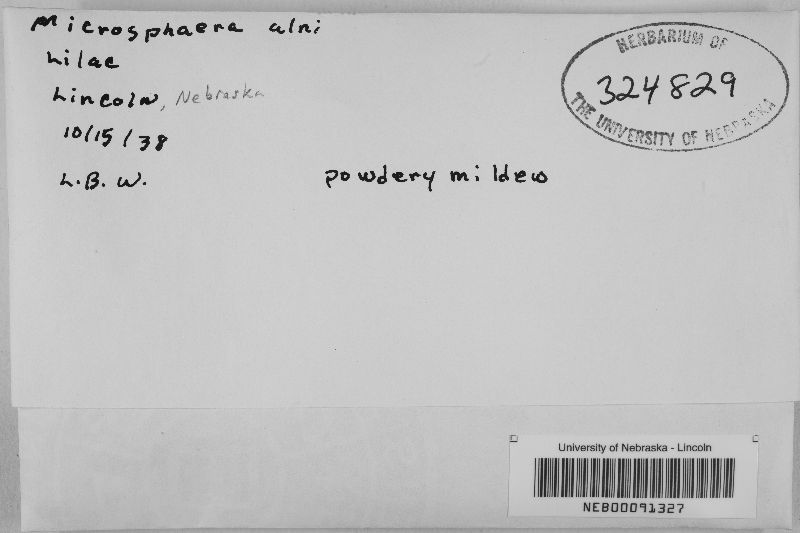 Microsphaera alni
Lilac
Lincoln, Nebraska
10/15/38
L.B.W.
powdery mildew
HERBARIUM OF
324829
THE UNIVERSITY OF NEBRASKA
University of Nebraska - Lincoln
NEB00091327